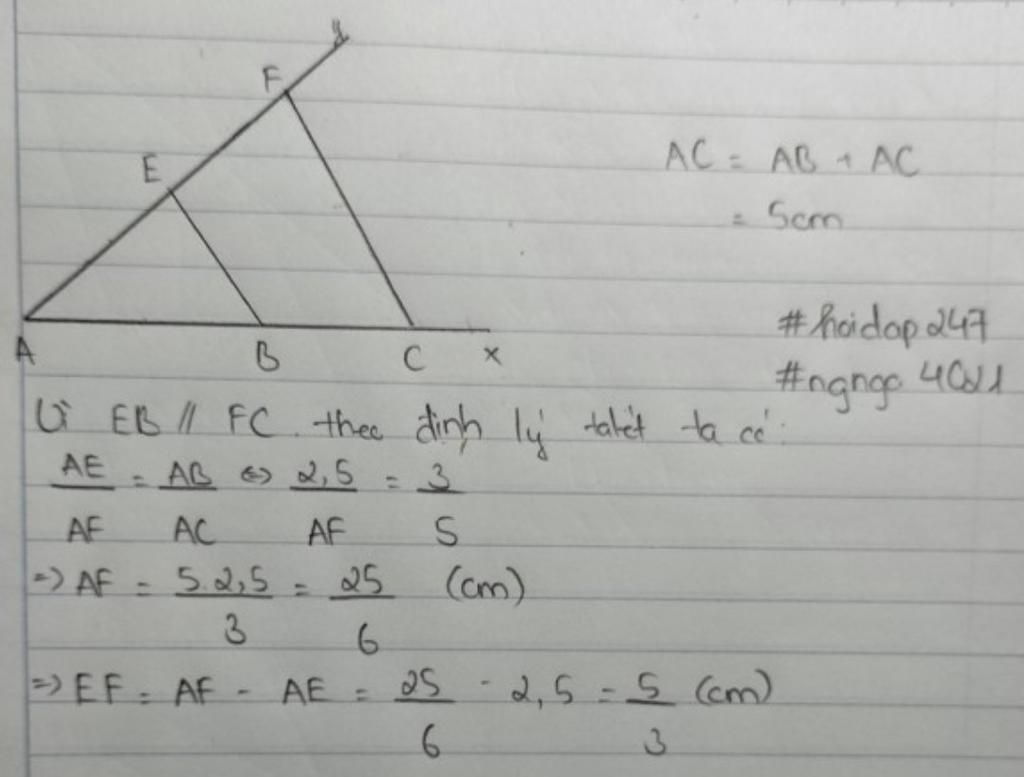 y
F
E
A B C x
AC = AB + AC
= 5cm
#hoidap247
Vì EB // FC. theo định lý talét ta có:
AE/AF = AB/AC <=> 2,5/AF = 3/5
=> AF = 5.2,5/3 = 25/6 (cm)
=> EF = AF - AE = 25/6 - 2,5 = 5/3 (cm)